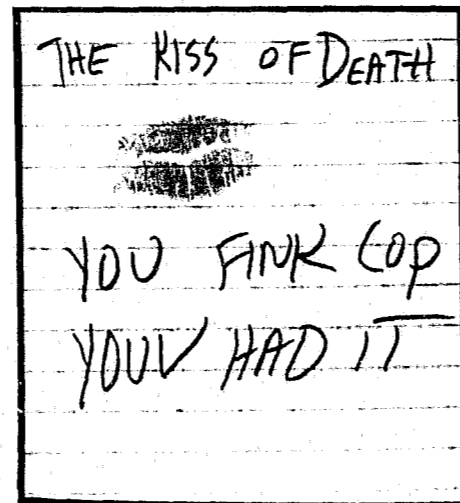 THE KISS OF DEATH
YOU FINK COP
YOUV HAD IT